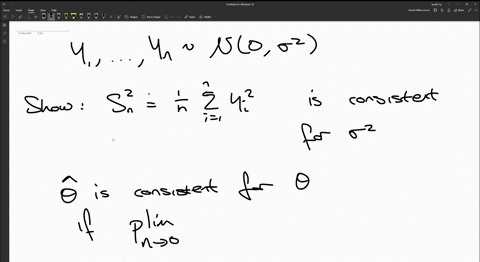 Y₁, ..., Yₙ ~ N(0, σ²)
Show: Sₙ² ≐ 1/n Σᵢ₌₁ⁿ Yᵢ² is consistent
for σ²
θ̂ is consistent for θ
if plim n→0